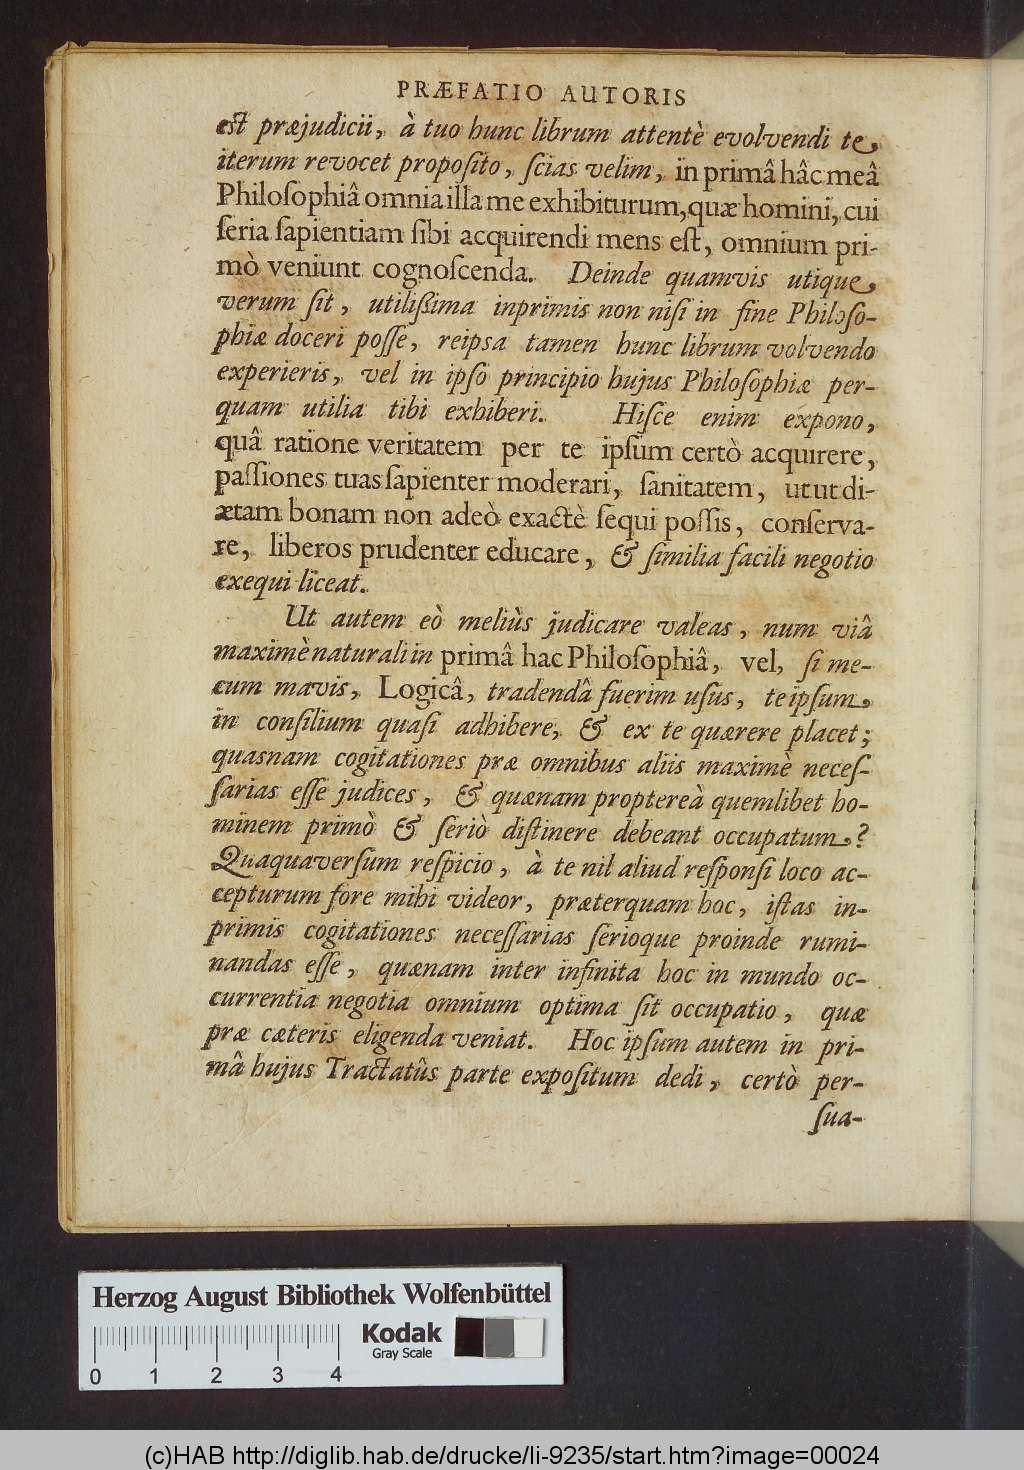 PRÆFATIO AUTORIS
est præjudicii, à tuo hunc librum attentè evolvendi te
iterum revocet proposito, ſcias velim, in primâ hâc meâ
Philoſophiâ omnia illa me exhibiturum, quæ homini, cui
ſeria ſapientiam ſibi acquirendi mens eſt, omnium pri-
mò veniunt cognoſcenda. Deinde quamvis utique
verum ſit, utilißima inprimis non niſi in fine Philoſo-
phiæ doceri poſſe, reipsa tamen hunc librum volvendo
experieris, vel in ipſo principio hujus Philoſophiæ per-
quam utilia tibi exhiberi. Hiſce enim expono,
quâ ratione veritatem per te ipſum certò acquirere,
paſſiones tuas ſapienter moderari, ſanitatem, ut ut di-
ætam bonam non adeò exactè ſequi poſſis, conſerva-
re, liberos prudenter educare, & ſimilia facili negotio
exequi liceat.
Ut autem eò meliùs judicare valeas, num viâ
maximè naturali in primâ hac Philoſophiâ, vel, ſi me-
cum mavis, Logicâ, tradendâ fuerim uſus, te ipſum
in conſilium quaſi adhibere, & ex te quærere placet;
quasnam cogitationes præ omnibus aliis maximè neceſ-
ſarias eſſe judices, & quænam proptereà quemlibet ho-
minem primò & ſeriò diſtinere debeant occupatum?
Quaquaverſum reſpicio, à te nil aliud reſponſi loco ac-
cepturum fore mihi videor, præterquam hoc, iſtas in-
primis cogitationes neceſſarias ſerioque proinde rumi-
nandas eſſe, quænam inter infinita hoc in mundo oc-
currentia negotia omnium optima ſit occupatio, quæ
præ cæteris eligenda veniat. Hoc ipſum autem in pri-
mâ hujus Tractatûs parte expoſitum dedi, certò per-
ſua-
Herzog August Bibliothek Wolfenbüttel
Kodak
Gray Scale
0 1 2 3 4
(c)HAB http://diglib.hab.de/drucke/li-9235/start.htm?image=00024